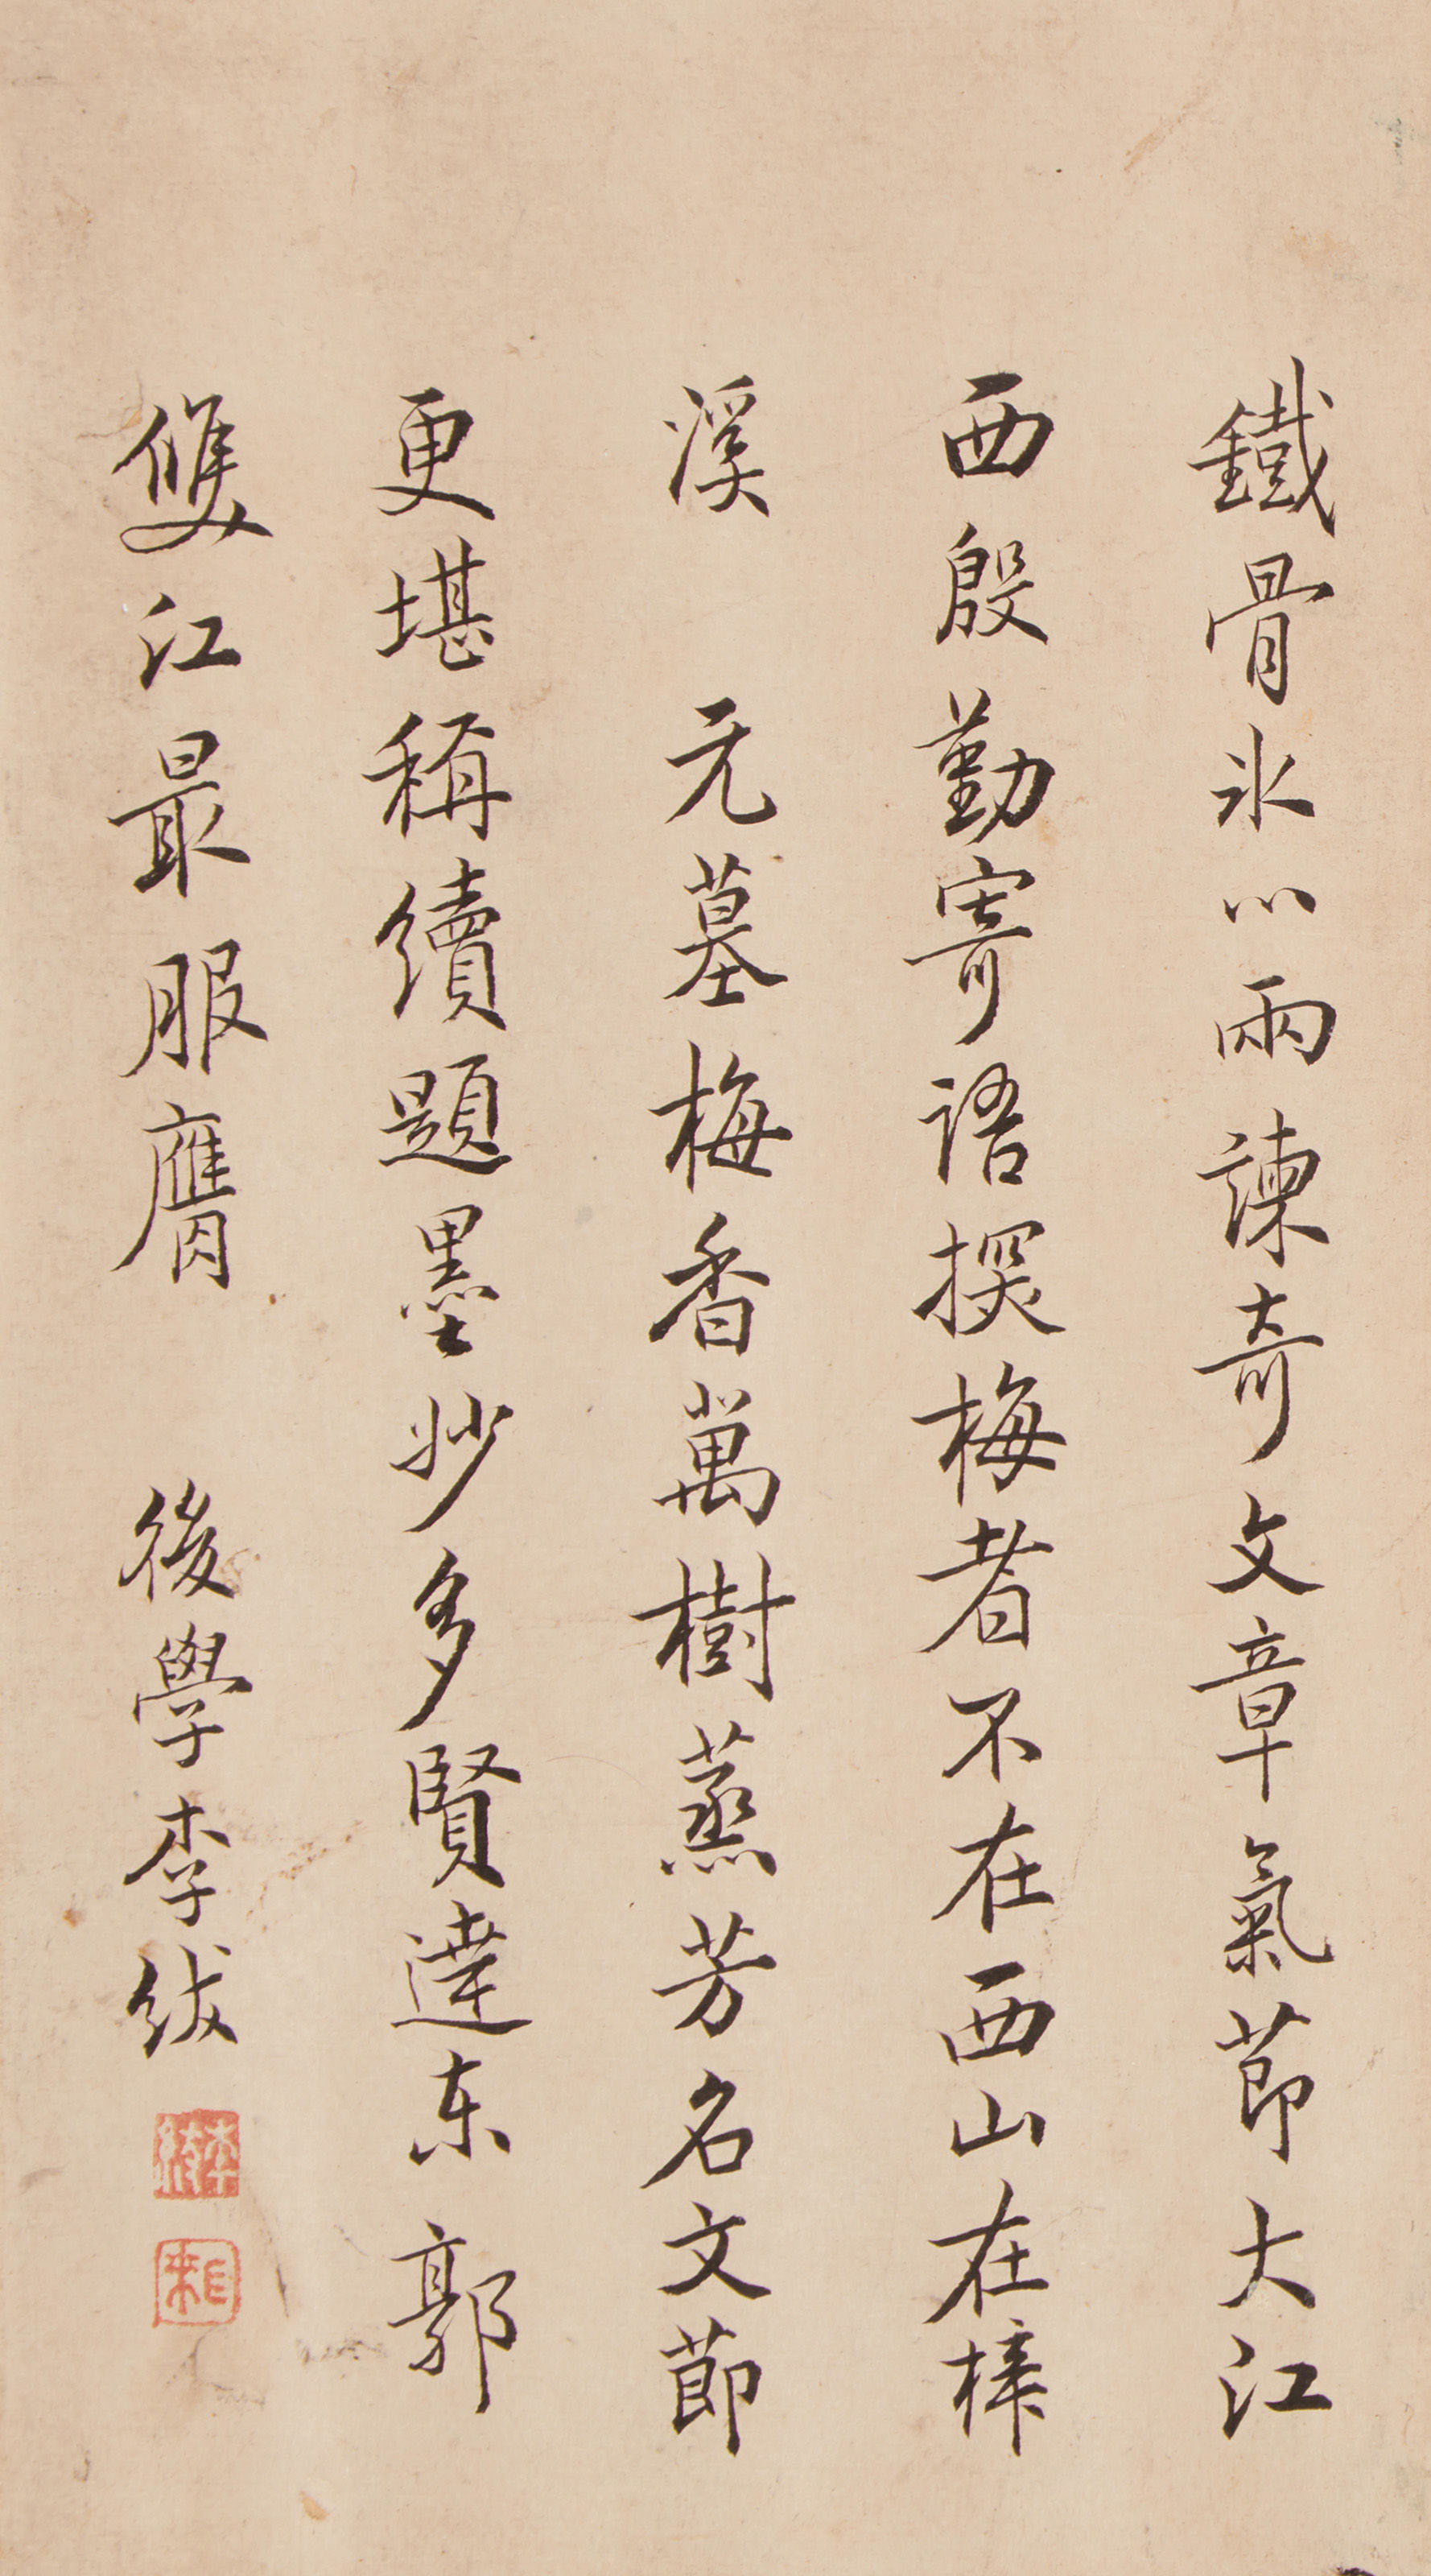 鐵骨冰心兩諫奇文章氣節大江
西殷勤寄語探梅者不在西山在梓
溪 元墓梅香萬樹蒸芳名文節
更堪稱續題墨妙多賢達東郭
雙江最服膺 後學李紱
李紱